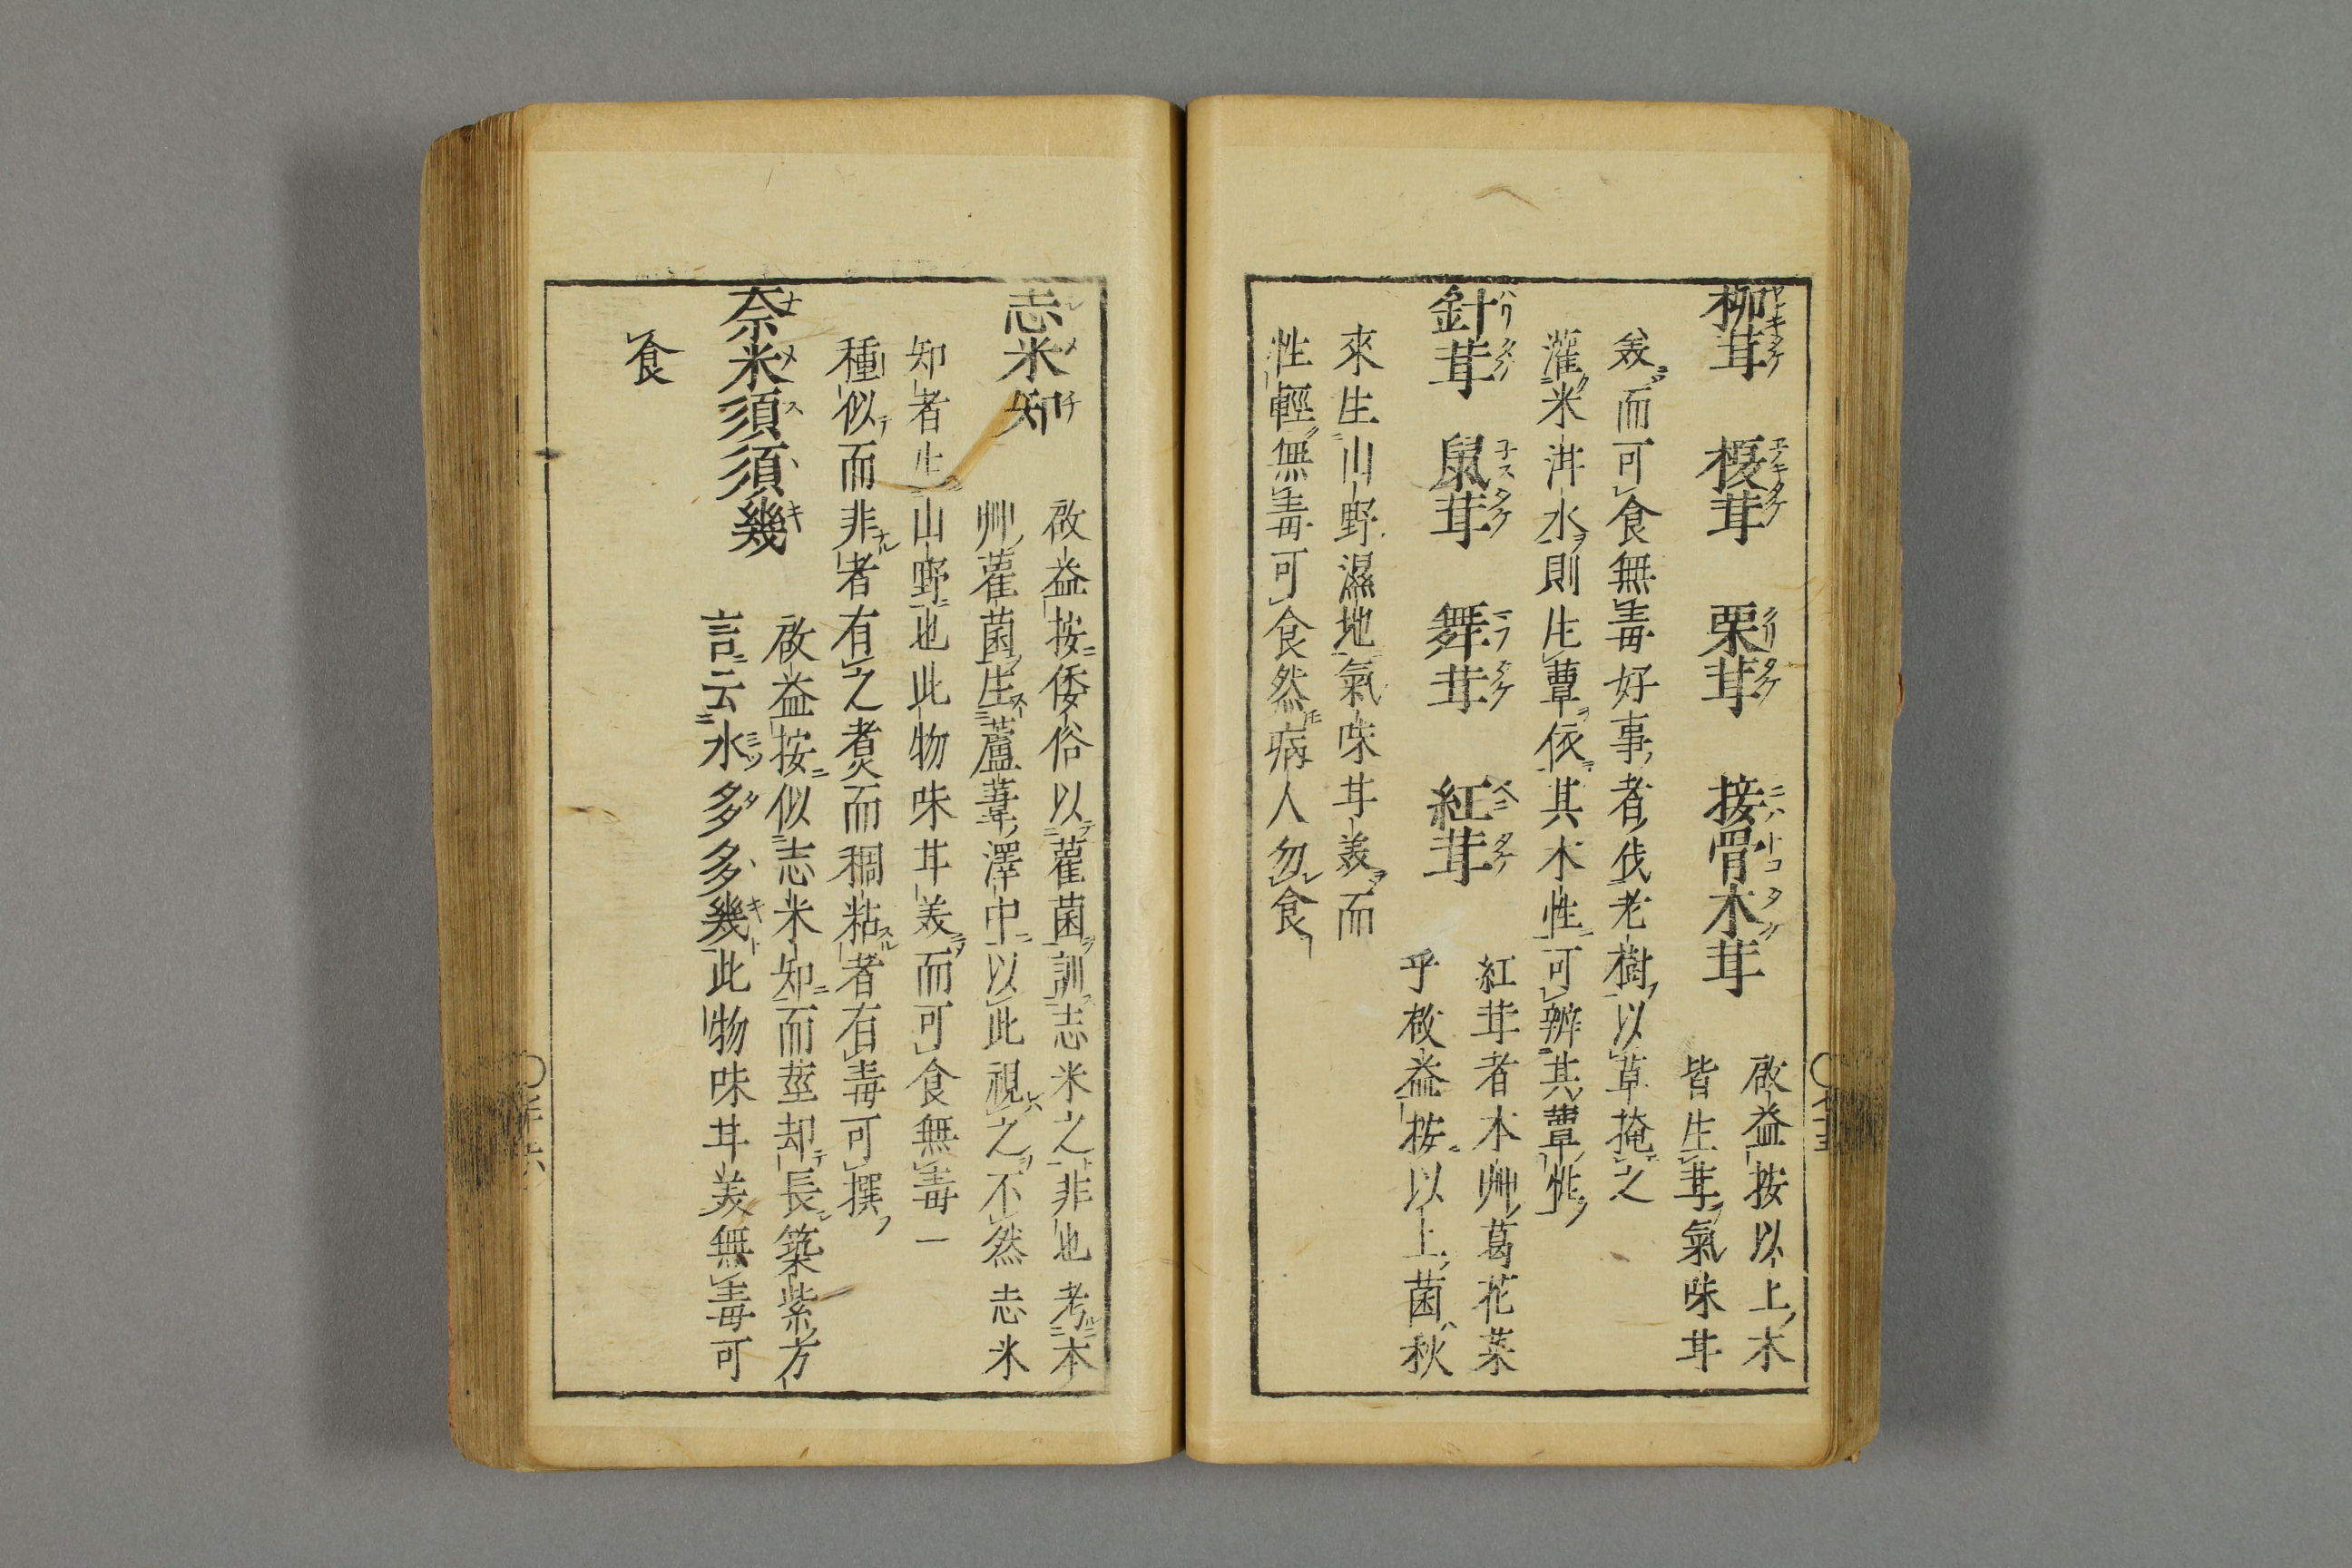 柳茸 榎茸 栗茸 接骨木茸
啟益按以上木
皆生茸氣味甘
美而可食無毒好事者伐老樹以草掩之
灌米泔水則生蕈依其木性可辨其蕈性
針茸 鼠茸 舞茸 紅茸
紅茸者本艸葛花菜
乎啟益按以上菌秋
來生山野濕地氣味甘美而
性輕無毒可食然病人勿食
志米知
啟益按倭俗以雚菌訓志米之非也考本
艸雚菌生蘆葦澤中以此視之不然志米
知者生山野也此物味甘美而可食無毒一
種似而非者有之煮而稠粘者有毒可撰
奈米須須幾
啟益按似志米知而莖却長築紫方
言云水多多幾此物味甘美無毒可
食